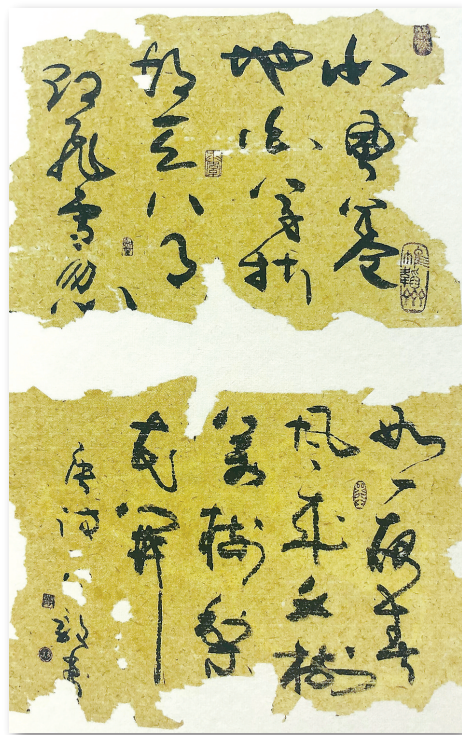 北風卷
地白草折
胡天八月
即飛雪忽
如一夜春
风来千樹
萬樹梨
花開
唐诗一首